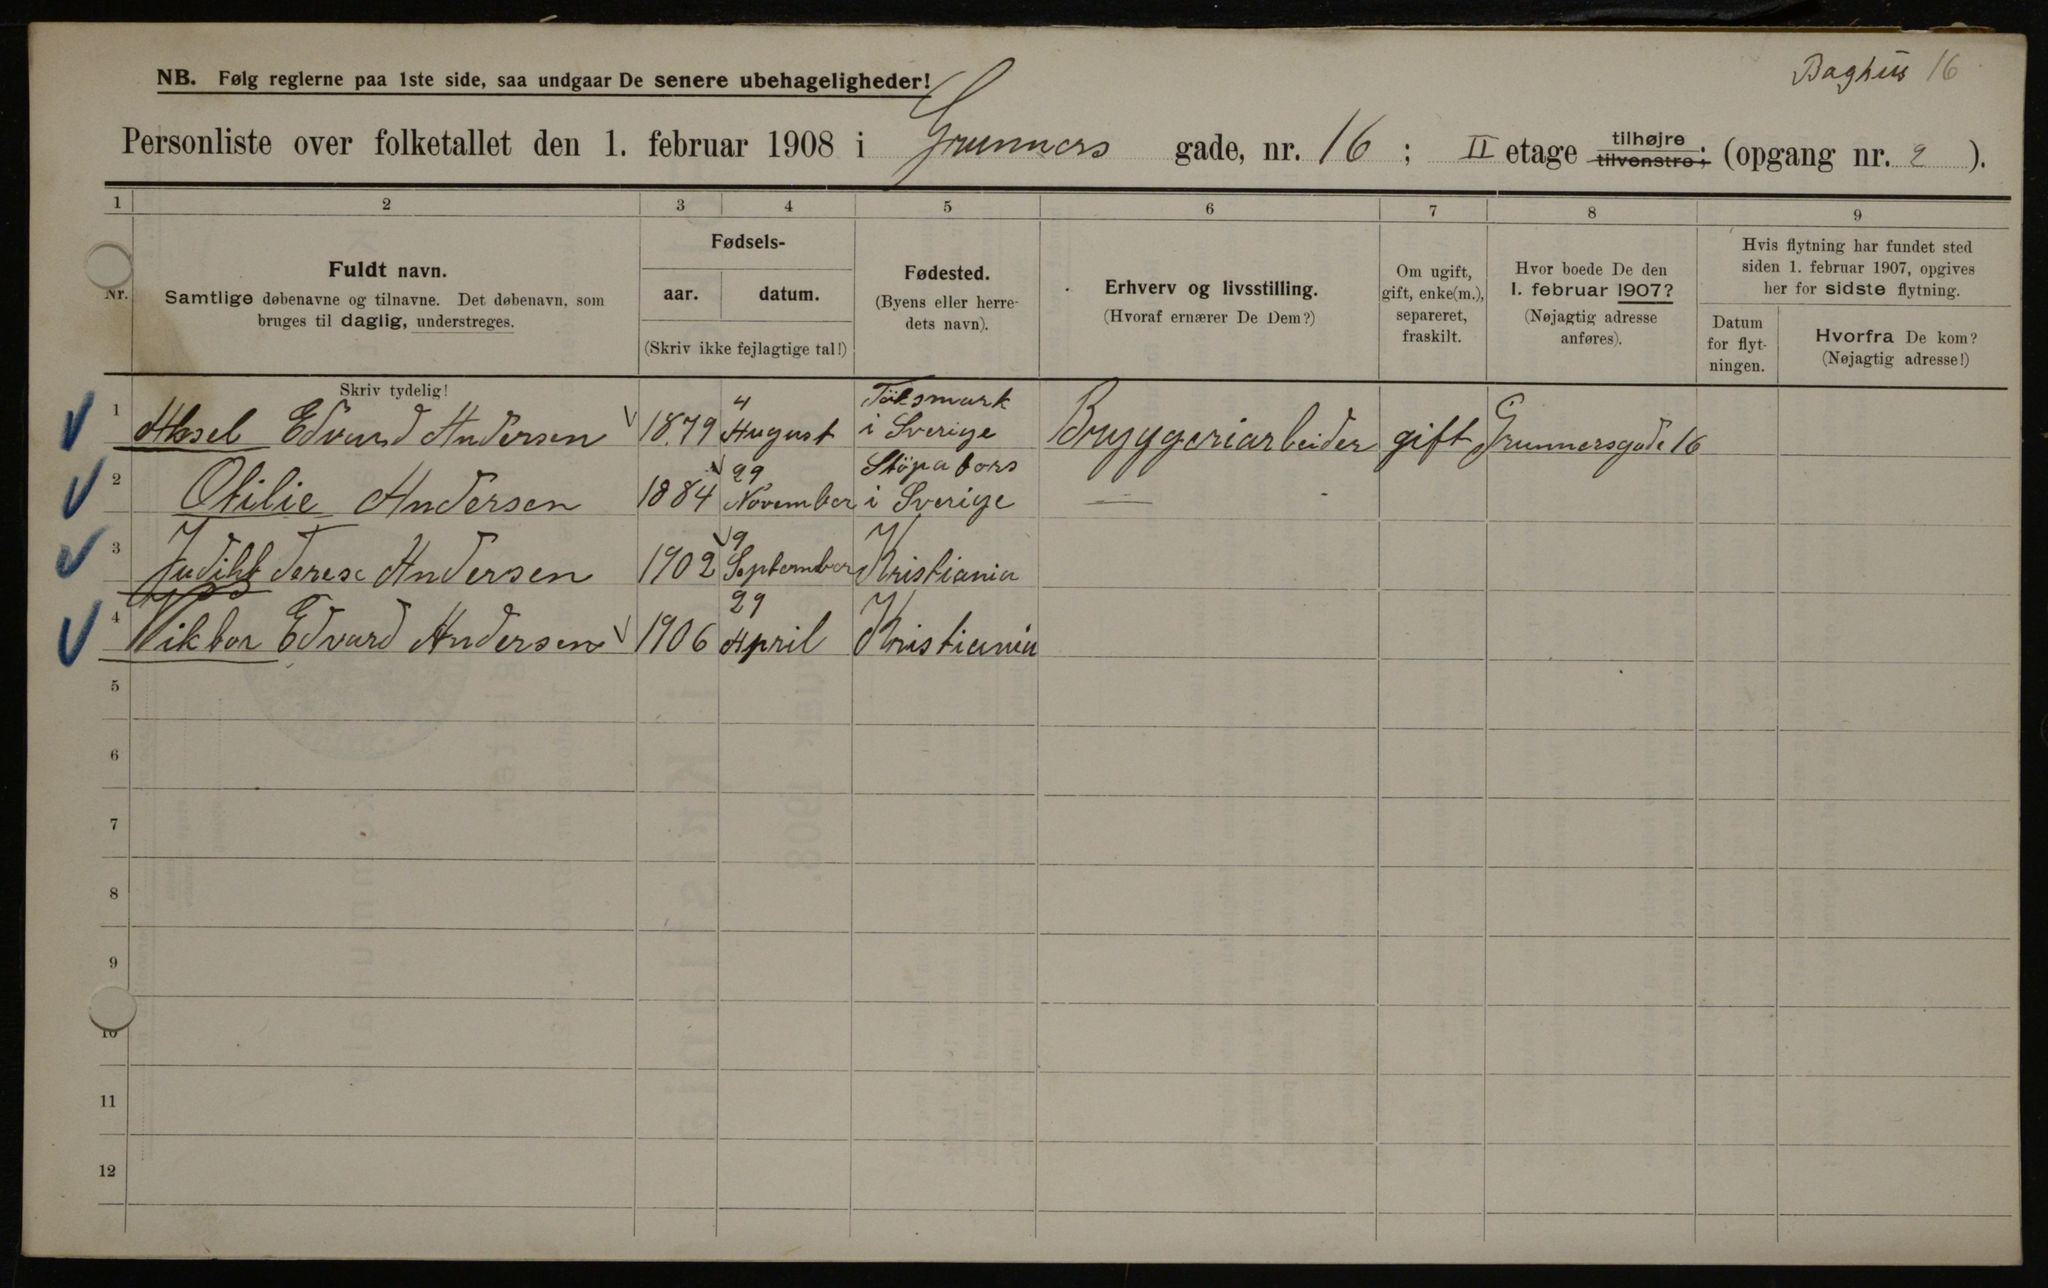 Baghus 16
NB. Følg reglerne paa 1ste side, saa undgaar De senere ubehageligheder!
Personliste over folketallet den 1. februar 1908 i Grunners gade, nr. 16 ; II etage tilhøjre tilvenstre; (opgang nr. 2 ).
1 2 3 4 5 6 7 8 9
Nr.
Fuldt navn.
Samtlige døbenavne og tilnavne. Det døbenavn, som
bruges til daglig, understreges.
Skriv tydelig!
Fødsels-
aar. datum.
(Skriv ikke fejlagtige tal!)
Fødested.
(Byens eller herre-
dets navn).
Erhverv og livsstilling.
(Hvoraf ernærer De Dem?)
Om ugift,
gift, enke(m.),
separeret,
fraskilt.
Hvor boede De den
1. februar 1907?
(Nøjagtig adresse
anføres).
Hvis flytning har fundet sted
siden 1. februar 1907, opgives
her for sidste flytning.
Datum
for flyt-
ningen.
Hvorfra De kom?
(Nøjagtig adresse!)
1 Aksel Edvard Andersen 1879 4 August Töksmark i Sverige Bryggeriarbeider gift Grunnersgade 16
2 Otilie Andersen 1884 29 November Stöpafors i Sverige —
3 Judiht Terese Andersen 1902 9 September Kristiania
4 Viktor Edvard Andersen 1906 29 April Kristiania
5
6
7
8
9
10
11
12